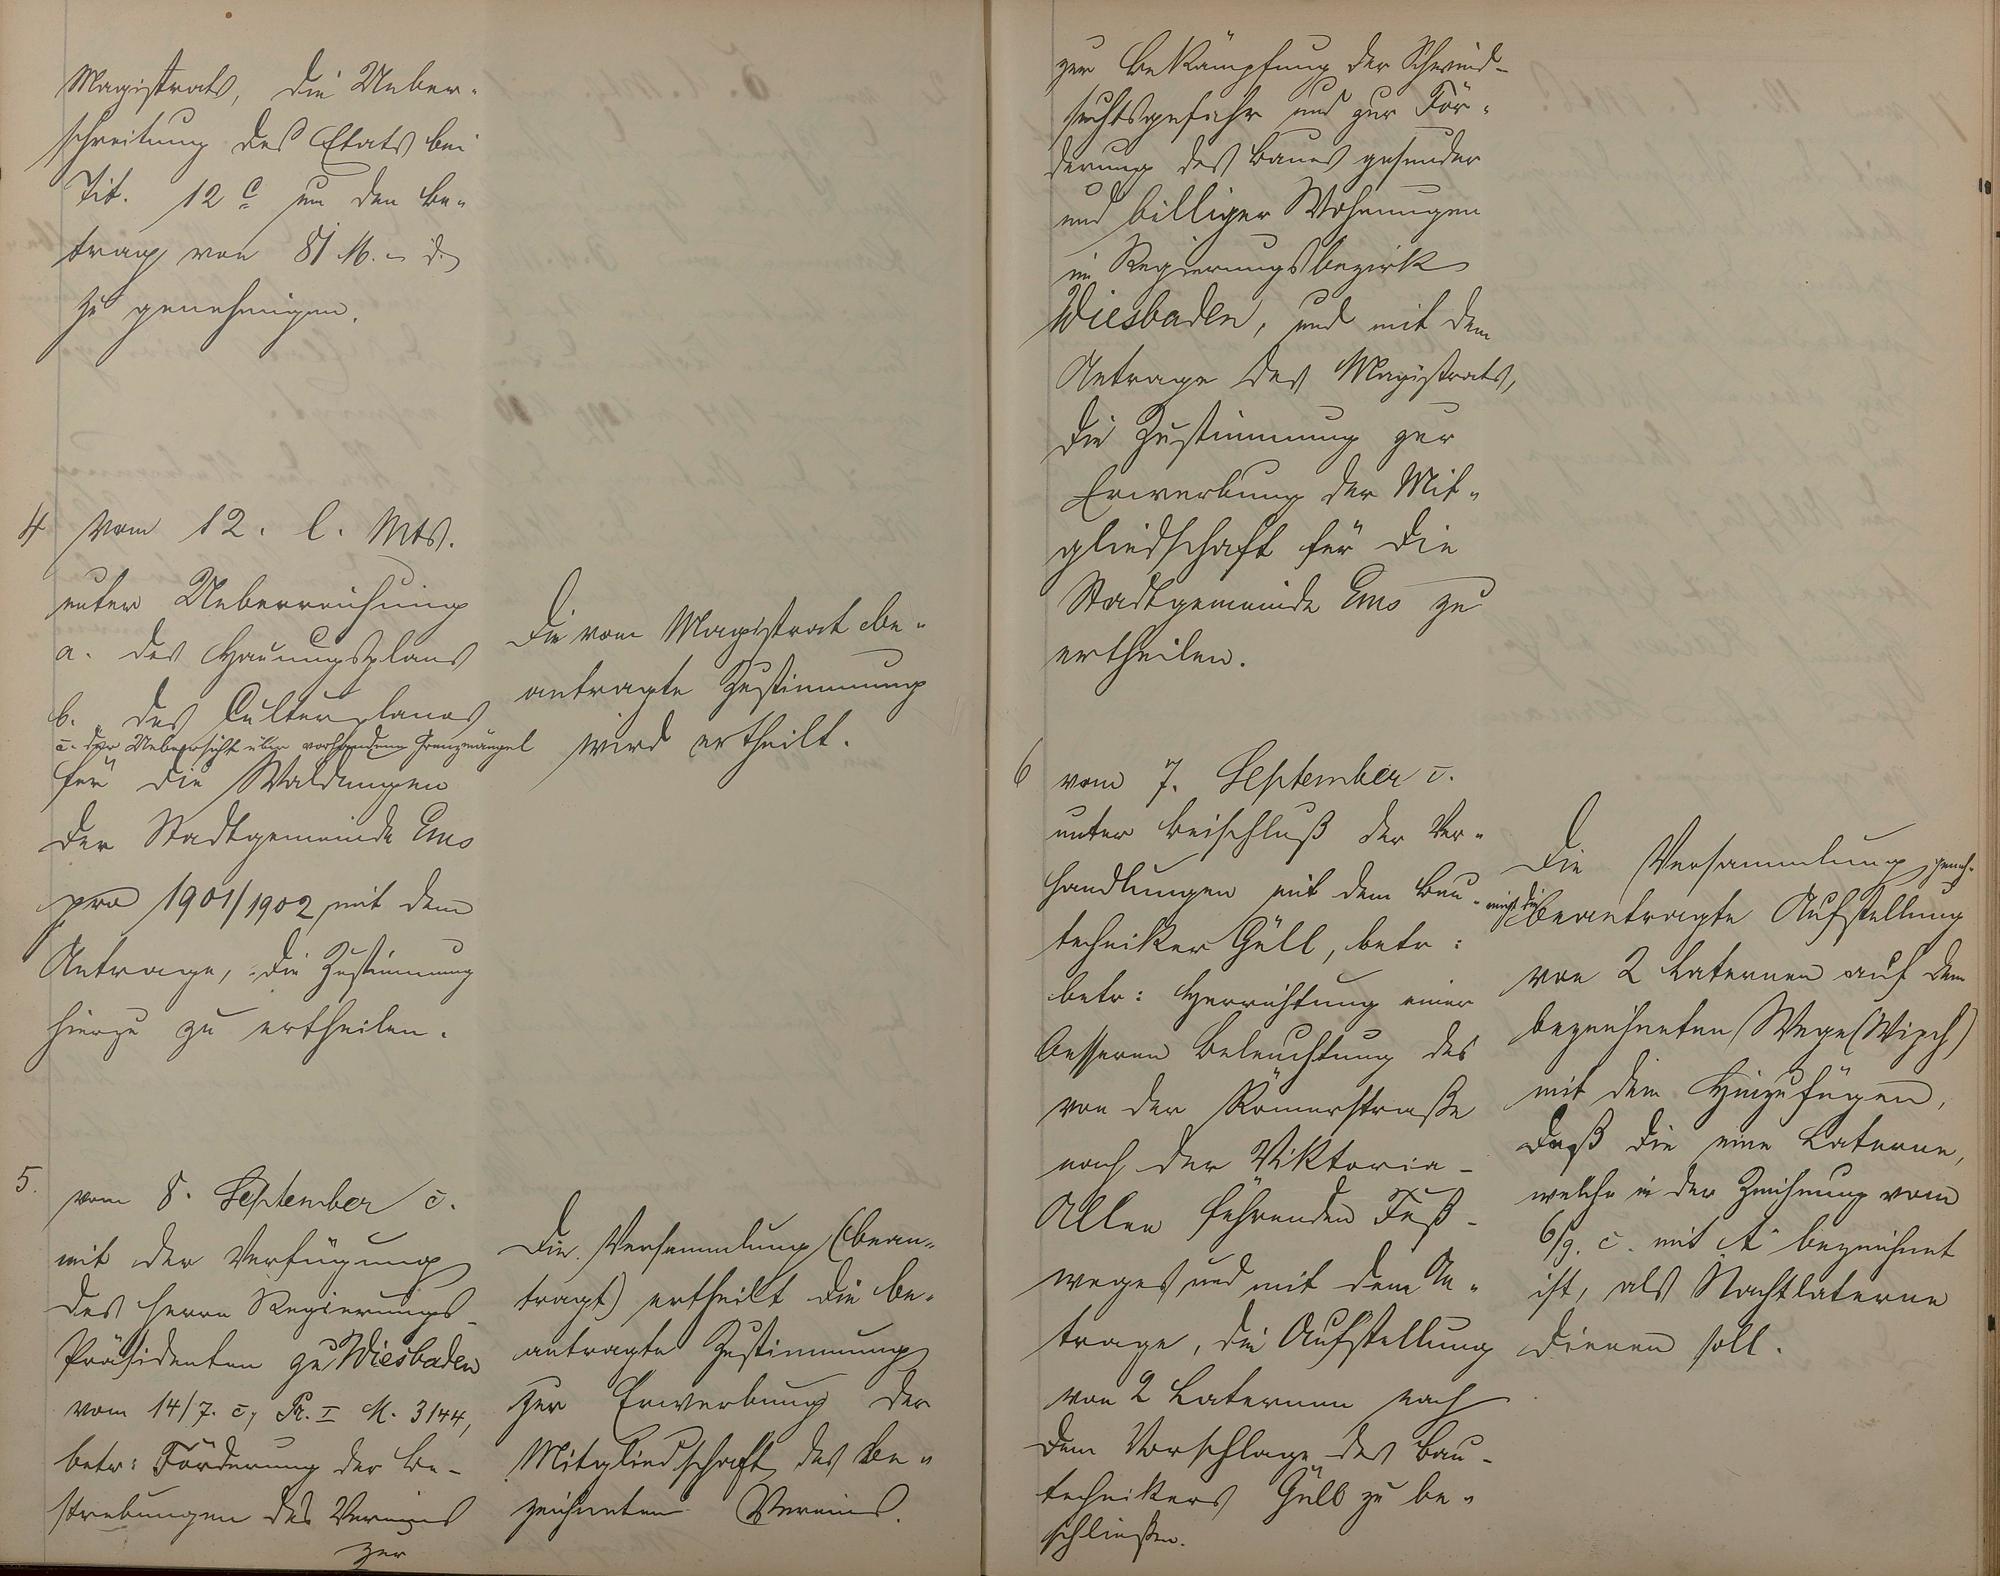 Magistrats, die Ueber-
schreitung des Etats bei
Tit. 12 c um den Be-
trag von 81 M. – d.
zu genehmigen.
4 vom 12. l. Mts.
unter Ueberreichung
a. des Hauungsplans
b. des Culturplanes
c. der Uebersicht über vorhandene Grenzmängel
für die Waldungen
der Stadtgemeinde Ems
pro 1901/1902 mit dem
Antrage, die Zustimmung
hierzu zu ertheilen.
Die vom Magistrat be-
antragte Zustimmung
wird ertheilt.
5. vom 8. September c.
mit der Verfügung
des Herrn Regierungs-
Präsidenten zu Wiesbaden
vom 14/7. c., Pr. I M. 3144,
betr: Förderung der Be-
strebungen des Vereins
zur
Die Versammlung (bean-
tragt) ertheilt die be-
antragte Zustimmung
zur Erwerbung der
Mitgliedschaft des be-
zeichneten Vereins.
zur Bekämpfung der Schwind-
suchtsgefahr und zur För-
derung des Baues gesunder
und billiger Wohnungen
im Regierungsbezirk
Wiesbaden, und mit dem
Antrage des Magistrats,
die Zustimmung zur
Erwerbung der Mit-
gliedschaft für die
Stadtgemeinde Ems zu
ertheilen.
6 vom 7. September c.
unter Beischluß der Ver-
handlungen mit dem Bau-
techniker Güll, betr:
betr: Herrichtung einer
besseren Beleuchtung des
von der Römerstraße
nach der Viktoria-
Allee führenden Fuß-
weges und mit dem An-
trage, die Aufstellung
von 2 Laternen nach
dem Vorschlage des Bau-
technikers Güll zu be-
schließen.
Die Versammlung geneh-
migt die beantragte Aufstellung
von 2 Laternen auf dem
bezeichneten Wege (Wipch)
mit dem Hinzufügen,
daß die eine Laterne,
welche in der Zeichnung vom
6/9. c. mit A bezeichnet
ist, als Nachtlaterne
dienen soll.